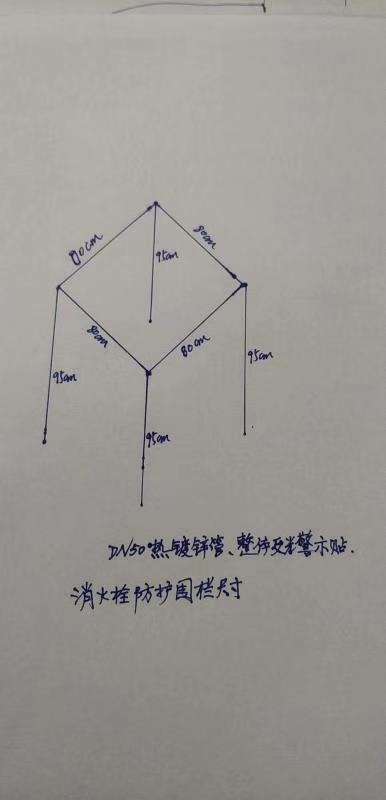 80cm
80cm
95cm
80cm
80cm
95cm
95cm
95cm
DN50热镀锌管、整体反光警示贴.
消火栓防护围栏尺寸